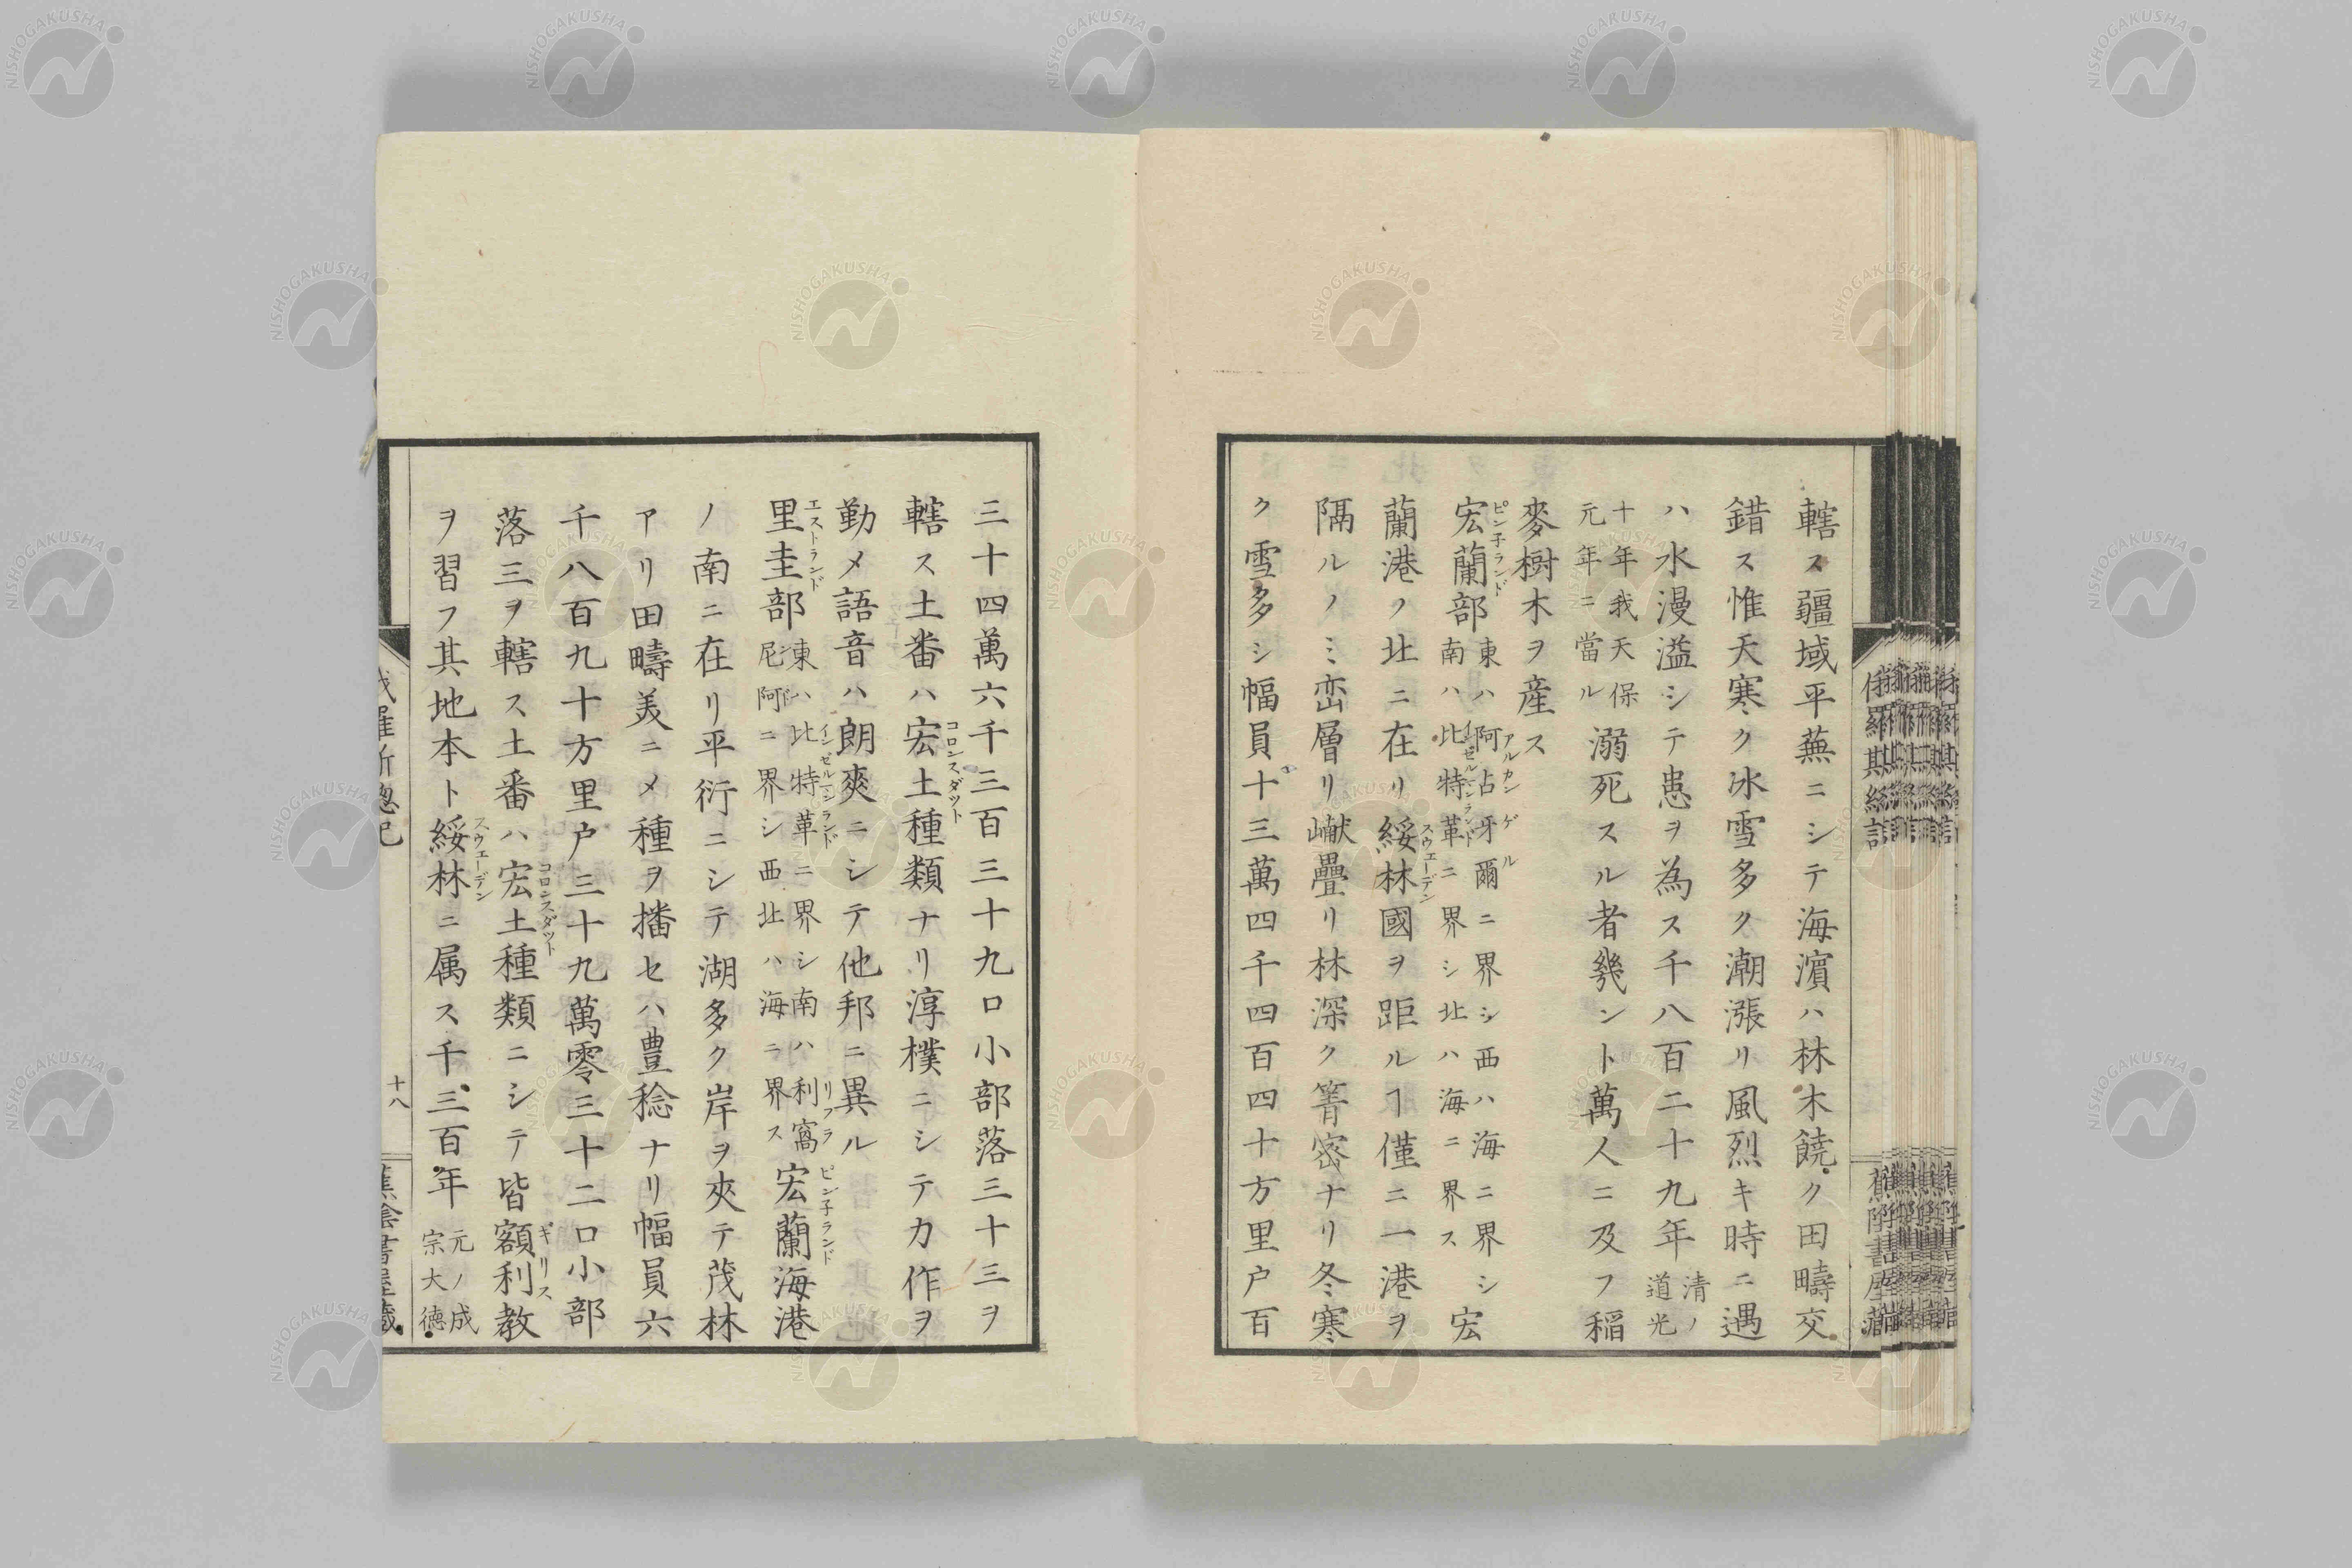 轄ス疆域平蕪ニシテ海濱ハ林木饒ク田疇交
錯ス惟天寒ク冰雪多ク潮漲リ風烈キ時ニ遇
ハ水漫溢シテ患ヲ為ス千八百二十九年清ノ道光
十年我天保元年ニ當ル溺死スル者幾ント萬人ニ及フ稲
麥樹木ヲ産ス
宏蘭部東ハ阿占牙爾ニ界シ西ハ海ニ界シ南ハ比特革ニ界シ北ハ海ニ界ス宏
ピン子ランド
アルカンゲル
イゼルマンランド
蘭港ノ北ニ在リ綏林國ヲ距ルヿ僅ニ一港ヲ
スウェーデン
隔ルノミ巒層リ巘疊リ林深ク箐密ナリ冬寒
ク雪多シ幅員十三萬四千四百四十方里户百
三十四萬六千三百三十九口小部落三十三ヲ
轄ス土番ハ宏土種類ナリ淳樸ニシテ力作ヲ
コロンスダット
勤メ語音ハ朗爽ニシテ他邦ニ異ル
里圭部東ハ比特革ニ界シ南ハ利窩尼阿ニ界シ西北ハ海ニ界ス宏蘭海港
エストランド
インゼルマンランド
リフランド
ピン子ランド
ノ南ニ在リ平衍ニシテ湖多ク岸ヲ夾テ茂林
アリ田疇美ニメ種ヲ播セハ豊稔ナリ幅員六
千八百九十方里户三十九萬零三十二口小部
落三ヲ轄ス土番ハ宏土種類ニシテ皆額利教
コロンスダット
ギリス
ヲ習フ其地本ト綏林ニ属ス千三百年元ノ成宗大德
スウェーデン
十八
NISHOGAKUSHA